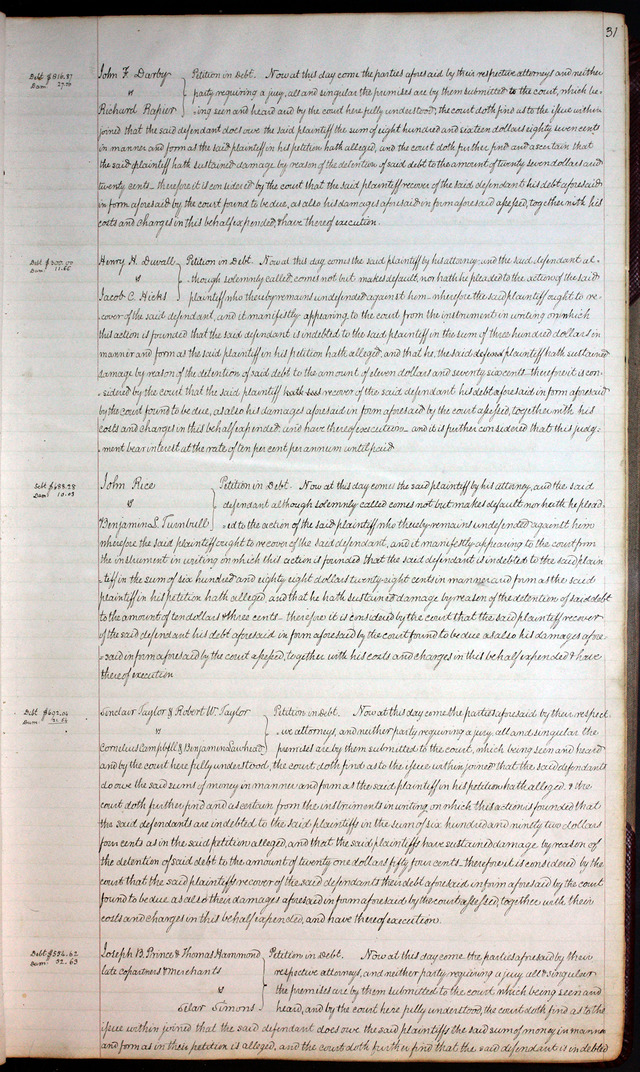 31
Debt $816.87
Dam 27.20
John F. Darby } Petition in Debt. Now at this day come the parties aforesaid by their respective attorneys and neither
vs party requiring a jury, all and singular the premises are by them submitted to the court, which be-
Richard Rapier } ing seen and heard and by the court here fully understood, the court doth find as to the issue within
joined that the said defendant does owe the said plaintiff the sum of eight hundred and sixteen dollars eighty seven cents
in manner and form as the said plaintiff in his petition hath alleged, and the court doth further find and ascertain that
the said plaintiff hath sustained damage by reason of the detention of said debt to the amount of twenty seven dollars and
twenty cents – therefore it is considered by the court that the said plaintiff recover of the said defendant his debt aforesaid
in form aforesaid by the court found to be due, as also his damages aforesaid in form aforesaid assessed, together with his
costs and charges in this behalf expended, & have thereof execution.
Debt $300.00
Dam 11.66
Henry H. Duvall } Petition in Debt. Now at this day, comes the said plaintiff by his attorney and the said defendant al-
vs though solemnly called, comes not but makes default, nor hath he pleaded to the action of the said
Jacob C. Hicks } plaintiff who thereby remains undefended against him – wherefore the said plaintiff ought to re-
cover of the said defendant, and it manifestly appearing to the court from the instrument in writing on which
this action is founded that the said defendant is indebted to the said plaintiff in the sum of three hundred dollars in
manner and form as the said plaintiff in his petition hath alleged, and that he, the said plaintiff hath sustained
damage by reason of the detention of said debt to the amount of eleven dollars and seventy six cents – therefore it is con-
sidered by the court that the said plaintiff recover of the said defendant his debt aforesaid in form aforesaid
by the court found to be due, as also his damages aforesaid in form aforesaid by the court assessed, together with his
costs and charges in this behalf expended and have thereof execution – and it is further considered that this judg-
ment bear interest at the rate of ten per cent per annum until paid
Debt $688.28
Dam 10.03
John Rice } Petition in Debt. Now at this day comes the said plaintiff by his attorney, and the said
vs defendant although solemnly called comes not but makes default nor hath he plead-
Benjamin L. Turnbull } ed to the action of the said plaintiff who thereby remains undefended against him
wherefore the said plaintiff ought to recover of the said defendant, and it manifestly appearing to the court from
the instrument in writing on which this action is founded that the said defendant is indebted to the said plain-
tiff in the sum of six hundred and eighty eight dollars twenty eight cents in manner and form as the said
plaintiff in his petition hath alleged, and that he hath sustained damage by reason of the detention of said debt
to the amount of ten dollars & three cents – therefore it is considered by the court that the said plaintiff recover
of the said defendant his debt aforesaid in form aforesaid by the court found to be due as also his damages afore-
said in form aforesaid by the court assessed, together with his costs and charges in this behalf expended & have
thereof execution
Debt $692.04
Dam 21.54
Sinclair Taylor & Robert W. Taylor } Petition in Debt. Now at this day come the parties aforesaid by their respect-
vs ive attorneys, and neither party requiring a jury, all and singular the
Cornelius Campbell & Benjamin Lawhead } premises are by them submitted to the court, which being seen and heard
and by the court here fully understood, the court doth find as to the issue within joined that the said defendants
do owe the said sums of money in manner and form as the said plaintiff in his petition hath alleged. & the
court doth further find and ascertain from the instruments in writing on which this action is founded that
the said defendants are indebted to the said plaintiffs in the sum of six hundred and ninety two dollars
four cents as in the said petition alleged, and that the said plaintiffs have sustained damage by reason of
the detention of said debt to the amount of twenty one dollars fifty four cents – therefore it is considered by the
court that the said plaintiffs recover of the said defendants their debt aforesaid in form aforesaid by the court
found to be due as also their damages aforesaid in form aforesaid by the court assessed, together with their
costs and charges in this behalf expended, and have thereof execution.
Debt $594.62
Dam 32.63
Joseph B. Prince & Thomas Hammond } Petition in Debt. Now at this day come the parties aforesaid by their
late copartners & merchants respective attorneys, and neither party requiring a jury all & singular
vs the premises are by them submitted to the court which being seen and
Elar Simons } heard, and by the court here fully understood, the court doth find as to the
issue within joined that the said defendant does owe the said plaintiffs the said sum of money in manner
and form as in their petition is alleged, and the court doth further find that the said defendant is indebted